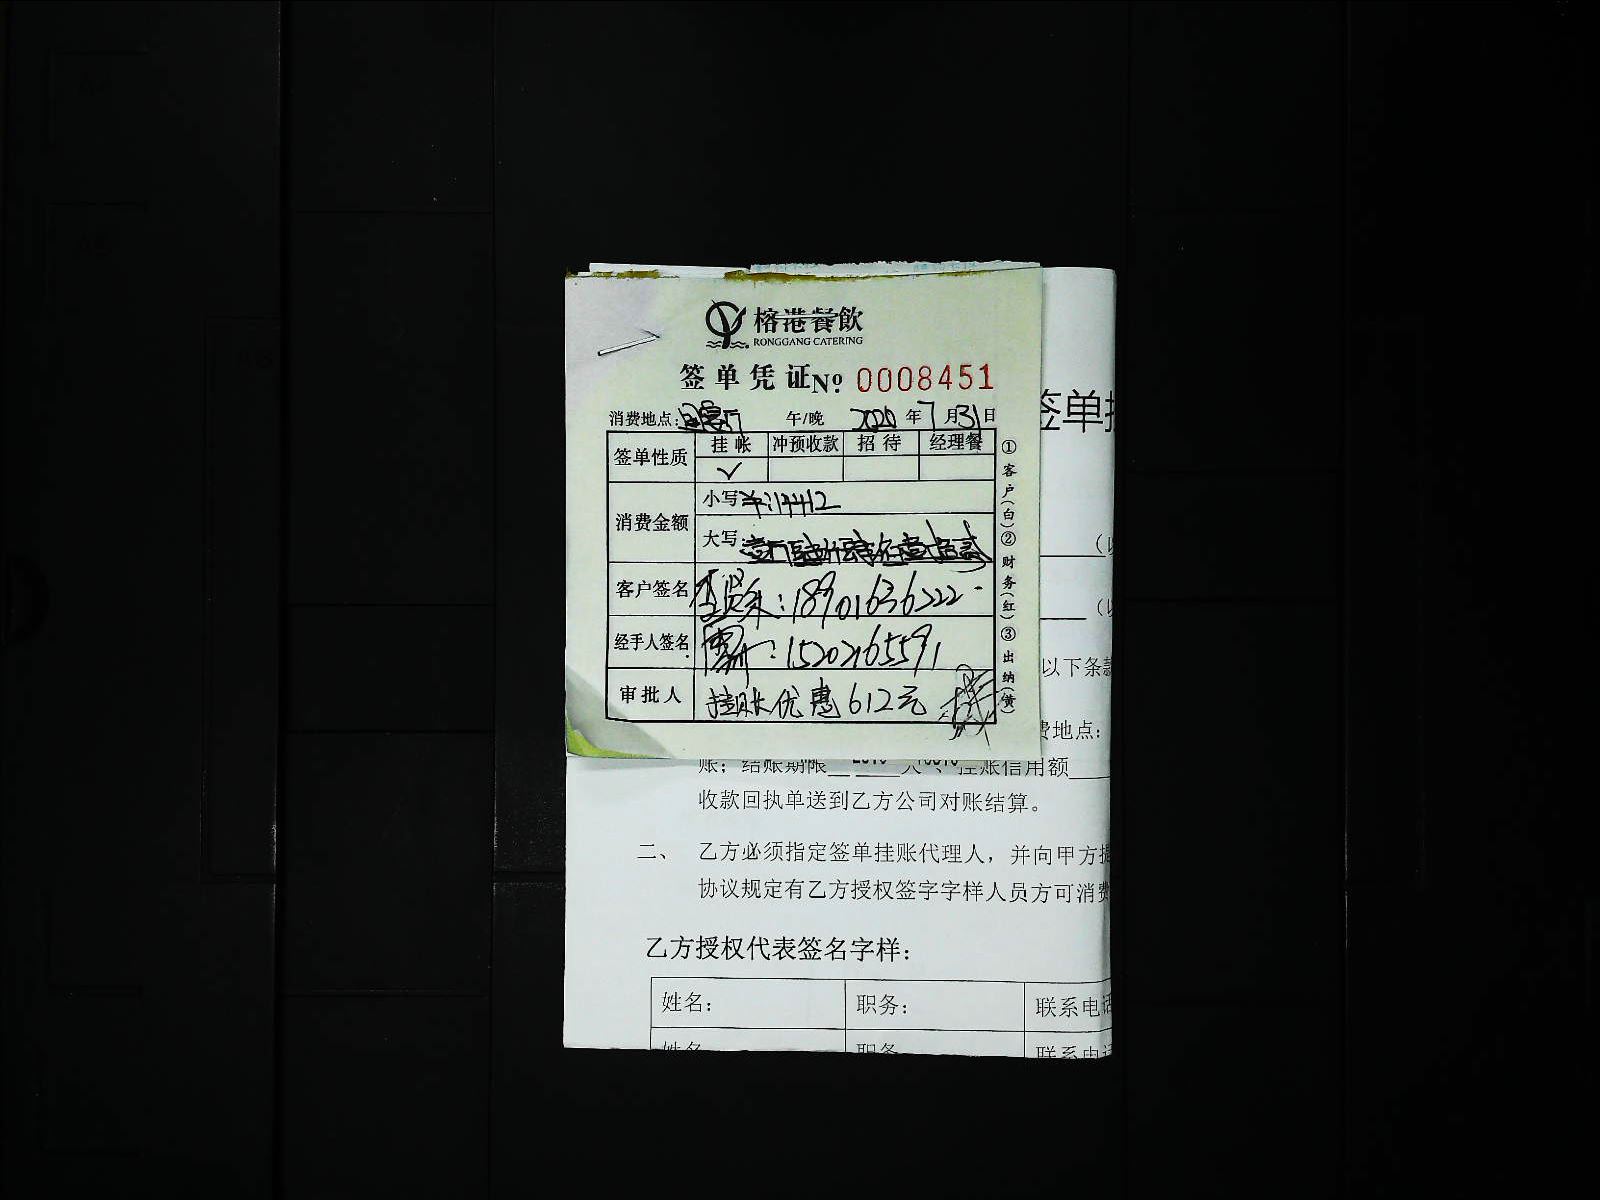 榕港餐飲
RONGGANG CATERING
签单凭证 No 0008451
消费地点: 午/晚 2020年7月31日
签单性质 挂帐 冲预收款 招待 经理餐
✓
消费金额 小写
大写:
客户签名 : 18901636222
经手人签名 : 15202165591
审批人 挂账优惠612元
①客户(白)②财务(红)③出纳(黄)
签单
(以
(以
以下条款
费地点:
账; 结账期限 天、挂账信用额
收款回执单送到乙方公司对账结算。
二、 乙方必须指定签单挂账代理人，并向甲方提
协议规定有乙方授权签字字样人员方可消费
乙方授权代表签名字样:
姓名: 职务: 联系电话
姓名 职务 联系电话